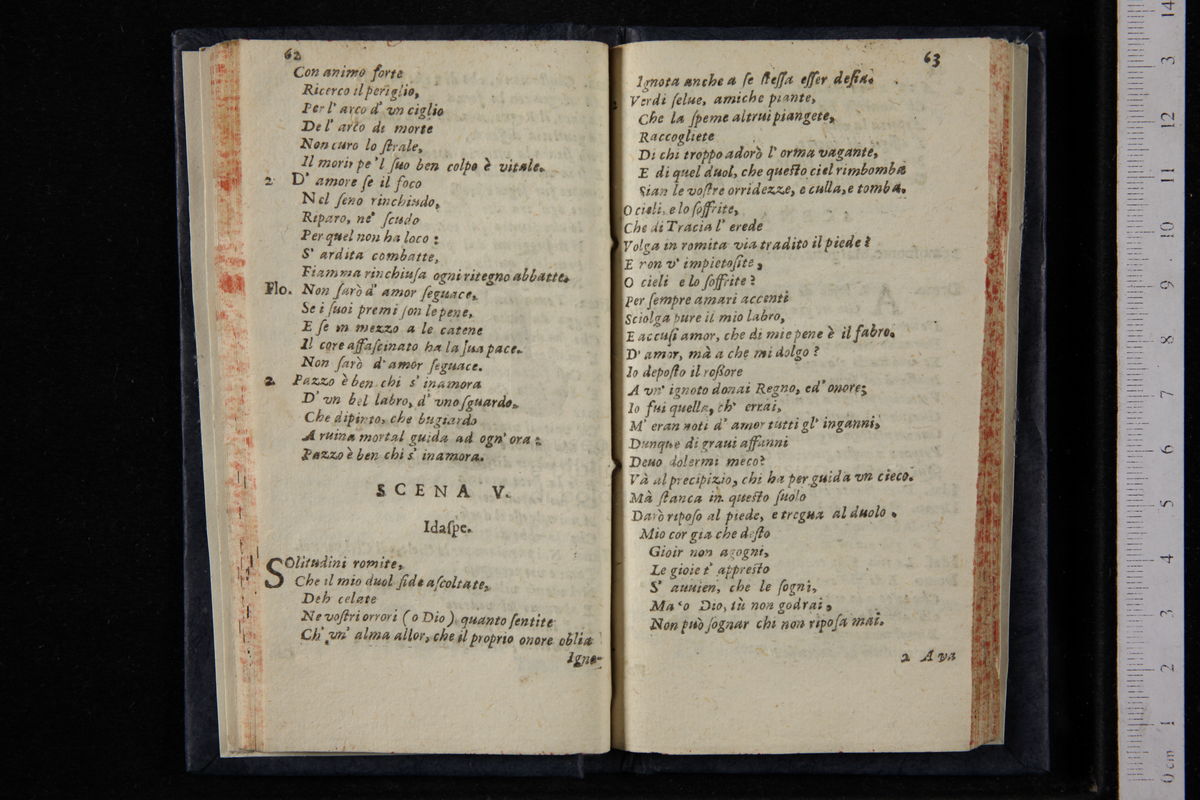 62
Con animo forte
Ricerco il periglio,
Per l' arco d' vn ciglio
De l' arco di morte
Non curo lo ſtrale,
Il morir pe 'l ſuo ben colpo è vitale.
2 D' amore ſe il foco
Nel ſeno rinchiudo,
Riparo, ne' ſcudo
Per quel non ha loco :
S' ardita combatte,
Fiamma rinchiuſa ogni ritegno abbatte.
Flo. Non ſarò d' amor ſeguace,
Se i ſuoi premi ſon le pene,
E ſe in mezzo a le catene
Il core affaſcinato ha la ſua pace.
Non ſarò d' amor ſeguace.
2. Pazzo è ben chi s' inamora
D' vn bel labro, d' vno ſguardo,
Che dipinto, che bugiardo
A ruina mortal guida ad ogn' ora :
Pazzo è ben chi s' inamora.
SCENA V.
Idaſpe.
SOlitudini romite,
Che il mio duol ſide aſcoltate,
Deh celate
Ne voſtri orrori (o Dio) quanto ſentite
Ch' vn' alma allor, che il proprio onore oblia
Igno-
63
Ignota anche a ſe ſteſſa eſſer deſia.
Verdi ſelue, amiche piante,
Che la ſpeme altrui piangete,
Raccogliete
Di chi troppo adorò l' orma vagante,
E di quel duol, che queſto ciel rimbomba
Sian le voſtre orridezze, e culla, e tomba.
O cieli, e lo ſoffrite,
Che di Tracia l' erede
Volga in romita via tradito il piede ?
E non v' impietoſite,
O cieli e lo ſoffrite ?
Per ſempre amari accenti
Sciolga pure il mio labro,
E accuſi amor, che di mie pene è il fabro.
D' amor, mà a che mi dolgo ?
Io depoſto il roßore
A vn' ignoto donai Regno, ed' onore;
Io fui quella, ch' errai,
M' eran noti d' amor tutti gl' inganni,
Dunque di graui affanni
Deuo dolermi meco?
Và al precipizio, chi ha per guida vn cieco.
Mà ſtanca in queſto ſuolo
Darò ripoſo al piede, e tregua al duolo .
Mio cor gia che deſto
Gioir non agogni,
Le gioie t' appreſto
S' auuien, che le ſogni,
Ma 'o Dio, tù non godrai,
Non può ſognar chi non ripoſa mai.
2 A va
0 cm 1 2 3 4 5 6 7 8 9 10 11 12 3 14